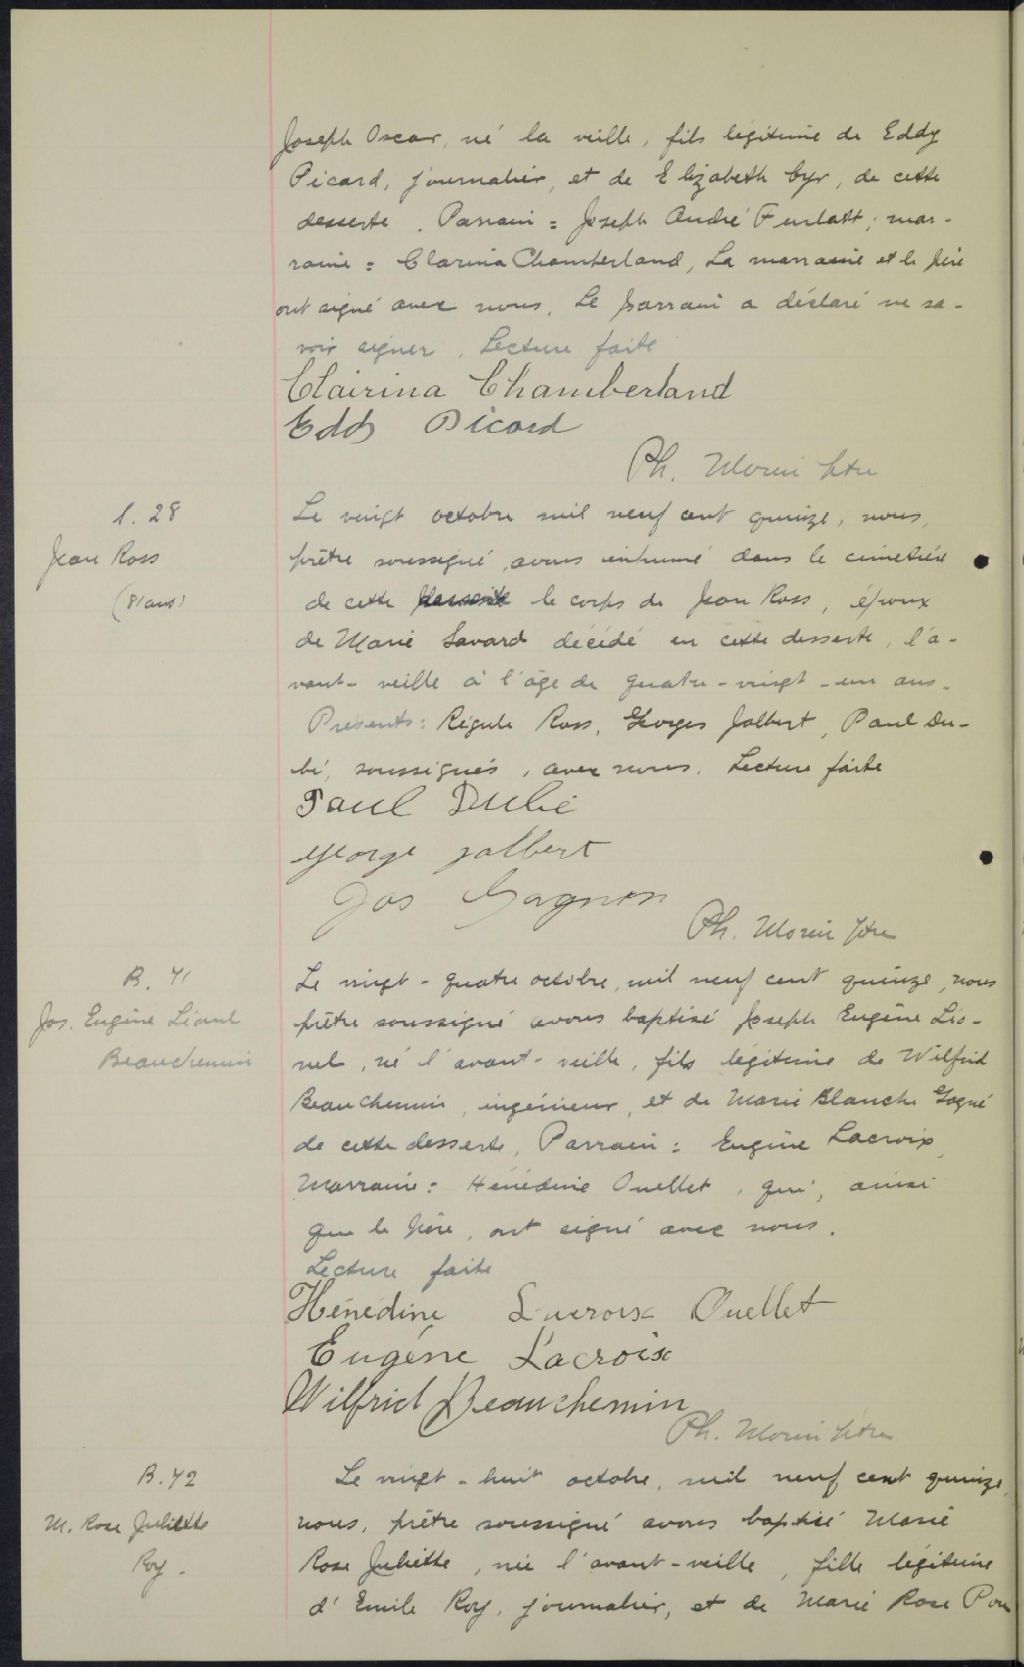 Joseph Oscar, né la veille, fils légitime de Eddy
Picard, journalier, et de Elizabeth Cyr, de cette
desserte. Parrain = Joseph André Furlatt; mar-
raine = Clarina Chamberland, La marraine et le père
ont signé avec nous. Le parrain a déclaré ne sa-
voir signer. Lecture faite
Clairina Chamberland
Eddy Picard
Ph. Morin ptre
S. 28
Jean Ross
(81 ans)
Le vingt octobre mil neuf cent quinze, nous,
prêtre soussigné, avons inhumé dans le cimetière
de cette desserte le corps de Jean Ross, époux
de Marie Savard décédé en cette desserte, l'a-
vant-veille à l'âge de quatre-vingt-un ans.
Présents: Régule Ross, Georges Jalbert, Paul Du-
bé, soussignés, avec nous. Lecture faite
Paul Dubé
George Jalbert
Jos Gagnon
Ph. Morin ptre
B. 41
Jos. Eugène Lionel
Beauchemin
Le vingt-quatre octobre, mil neuf cent quinze, nous
prêtre soussigné avons baptisé Joseph Eugène Lio-
nel, né l'avant-veille, fils légitime de Wilfrid
Beauchemin, ingénieur, et de Marie Blanche Gagné
de cette desserte, Parrain: Eugène Lacroix,
Marraine: Hénédine Ouellet, qui, ainsi
que le père, ont signé avec nous.
Lecture faite
Hénédine Lacroix Ouellet
Eugène Lacroix
Wilfrid Beauchemin
Ph. Morin ptre
B. 42
M. Rose Juliette
Roy.
Le vingt-huit octobre, mil neuf cent quinze,
nous, prêtre soussigné avons baptisé Marie
Rose Juliette, née l'avant-veille, fille légitime
d'Emile Roy, journalier, et de Marie Rose